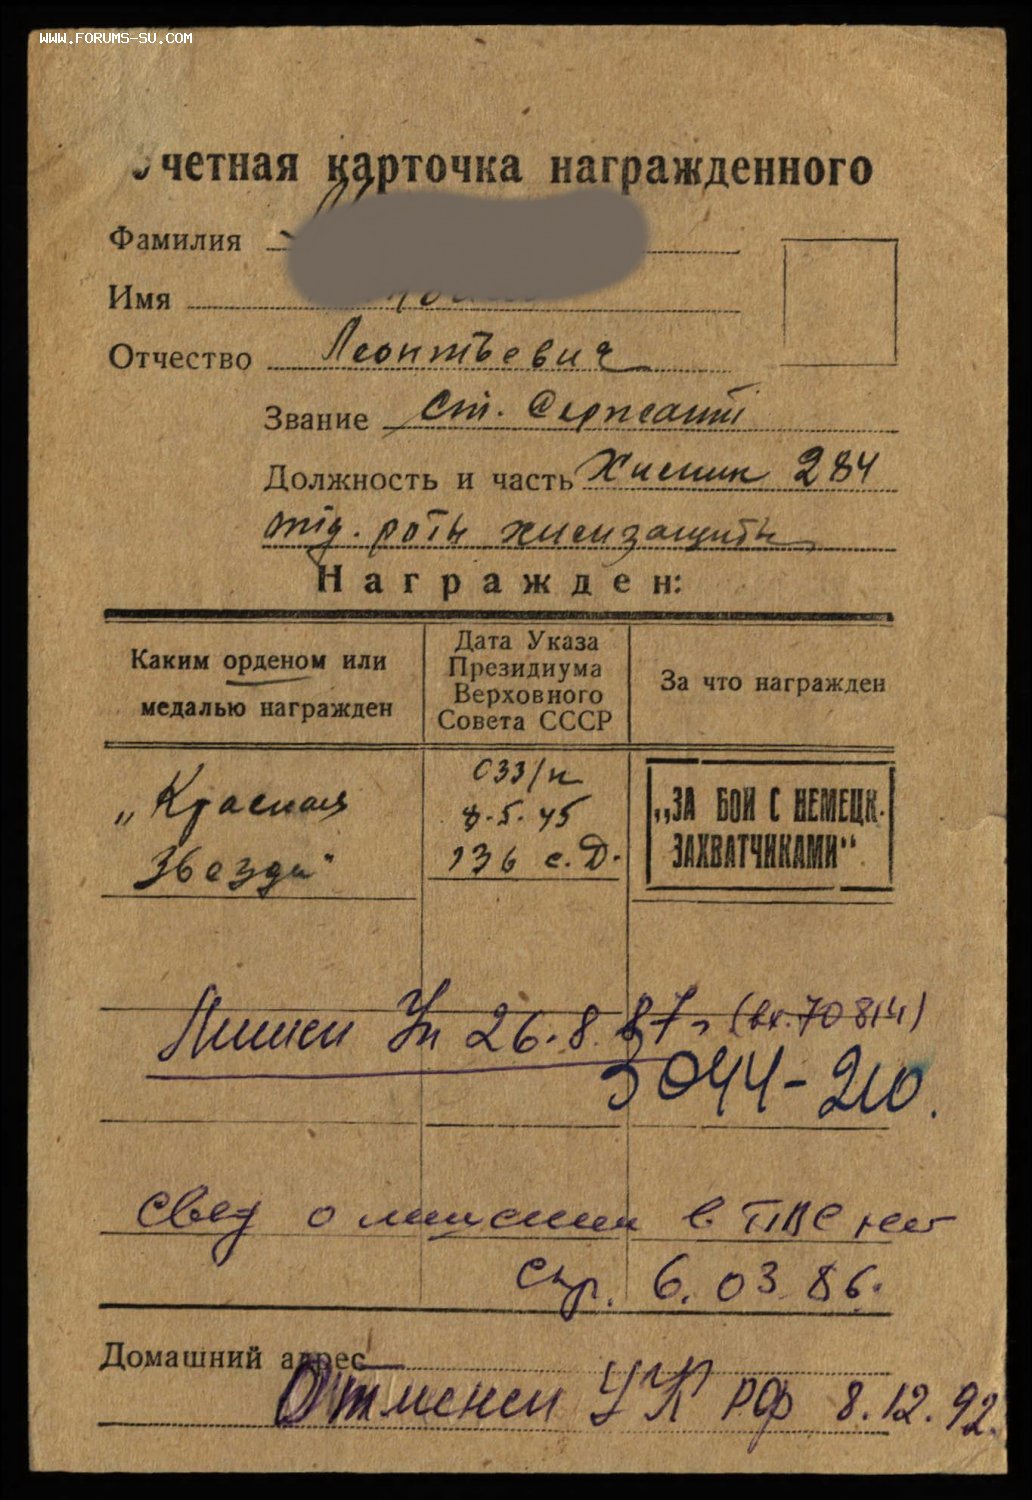 WWW.FORUMS-SU.COM
Учетная карточка награжденного
Фамилия
Имя
Отчество Леонтьевич
Звание Ст. Сержант
Должность и часть Химик 284
отд. роты химзащиты
Награжден:
Каким орденом или медалью награжден
Дата Указа Президиума Верховного Совета СССР
За что награжден
„Красная
Звезда"
033/н
8.5.45
136 с.Д.
„ЗА БОИ С НЕМЕЦК.
ЗАХВАТЧИКАМИ"
Лишен Ук 26.8.87г (вх.70814)
3044-210.
свед о лишении в ПВС нет
6.03.86.
Домашний адрес
Отменен УК РФ 8.12.92.